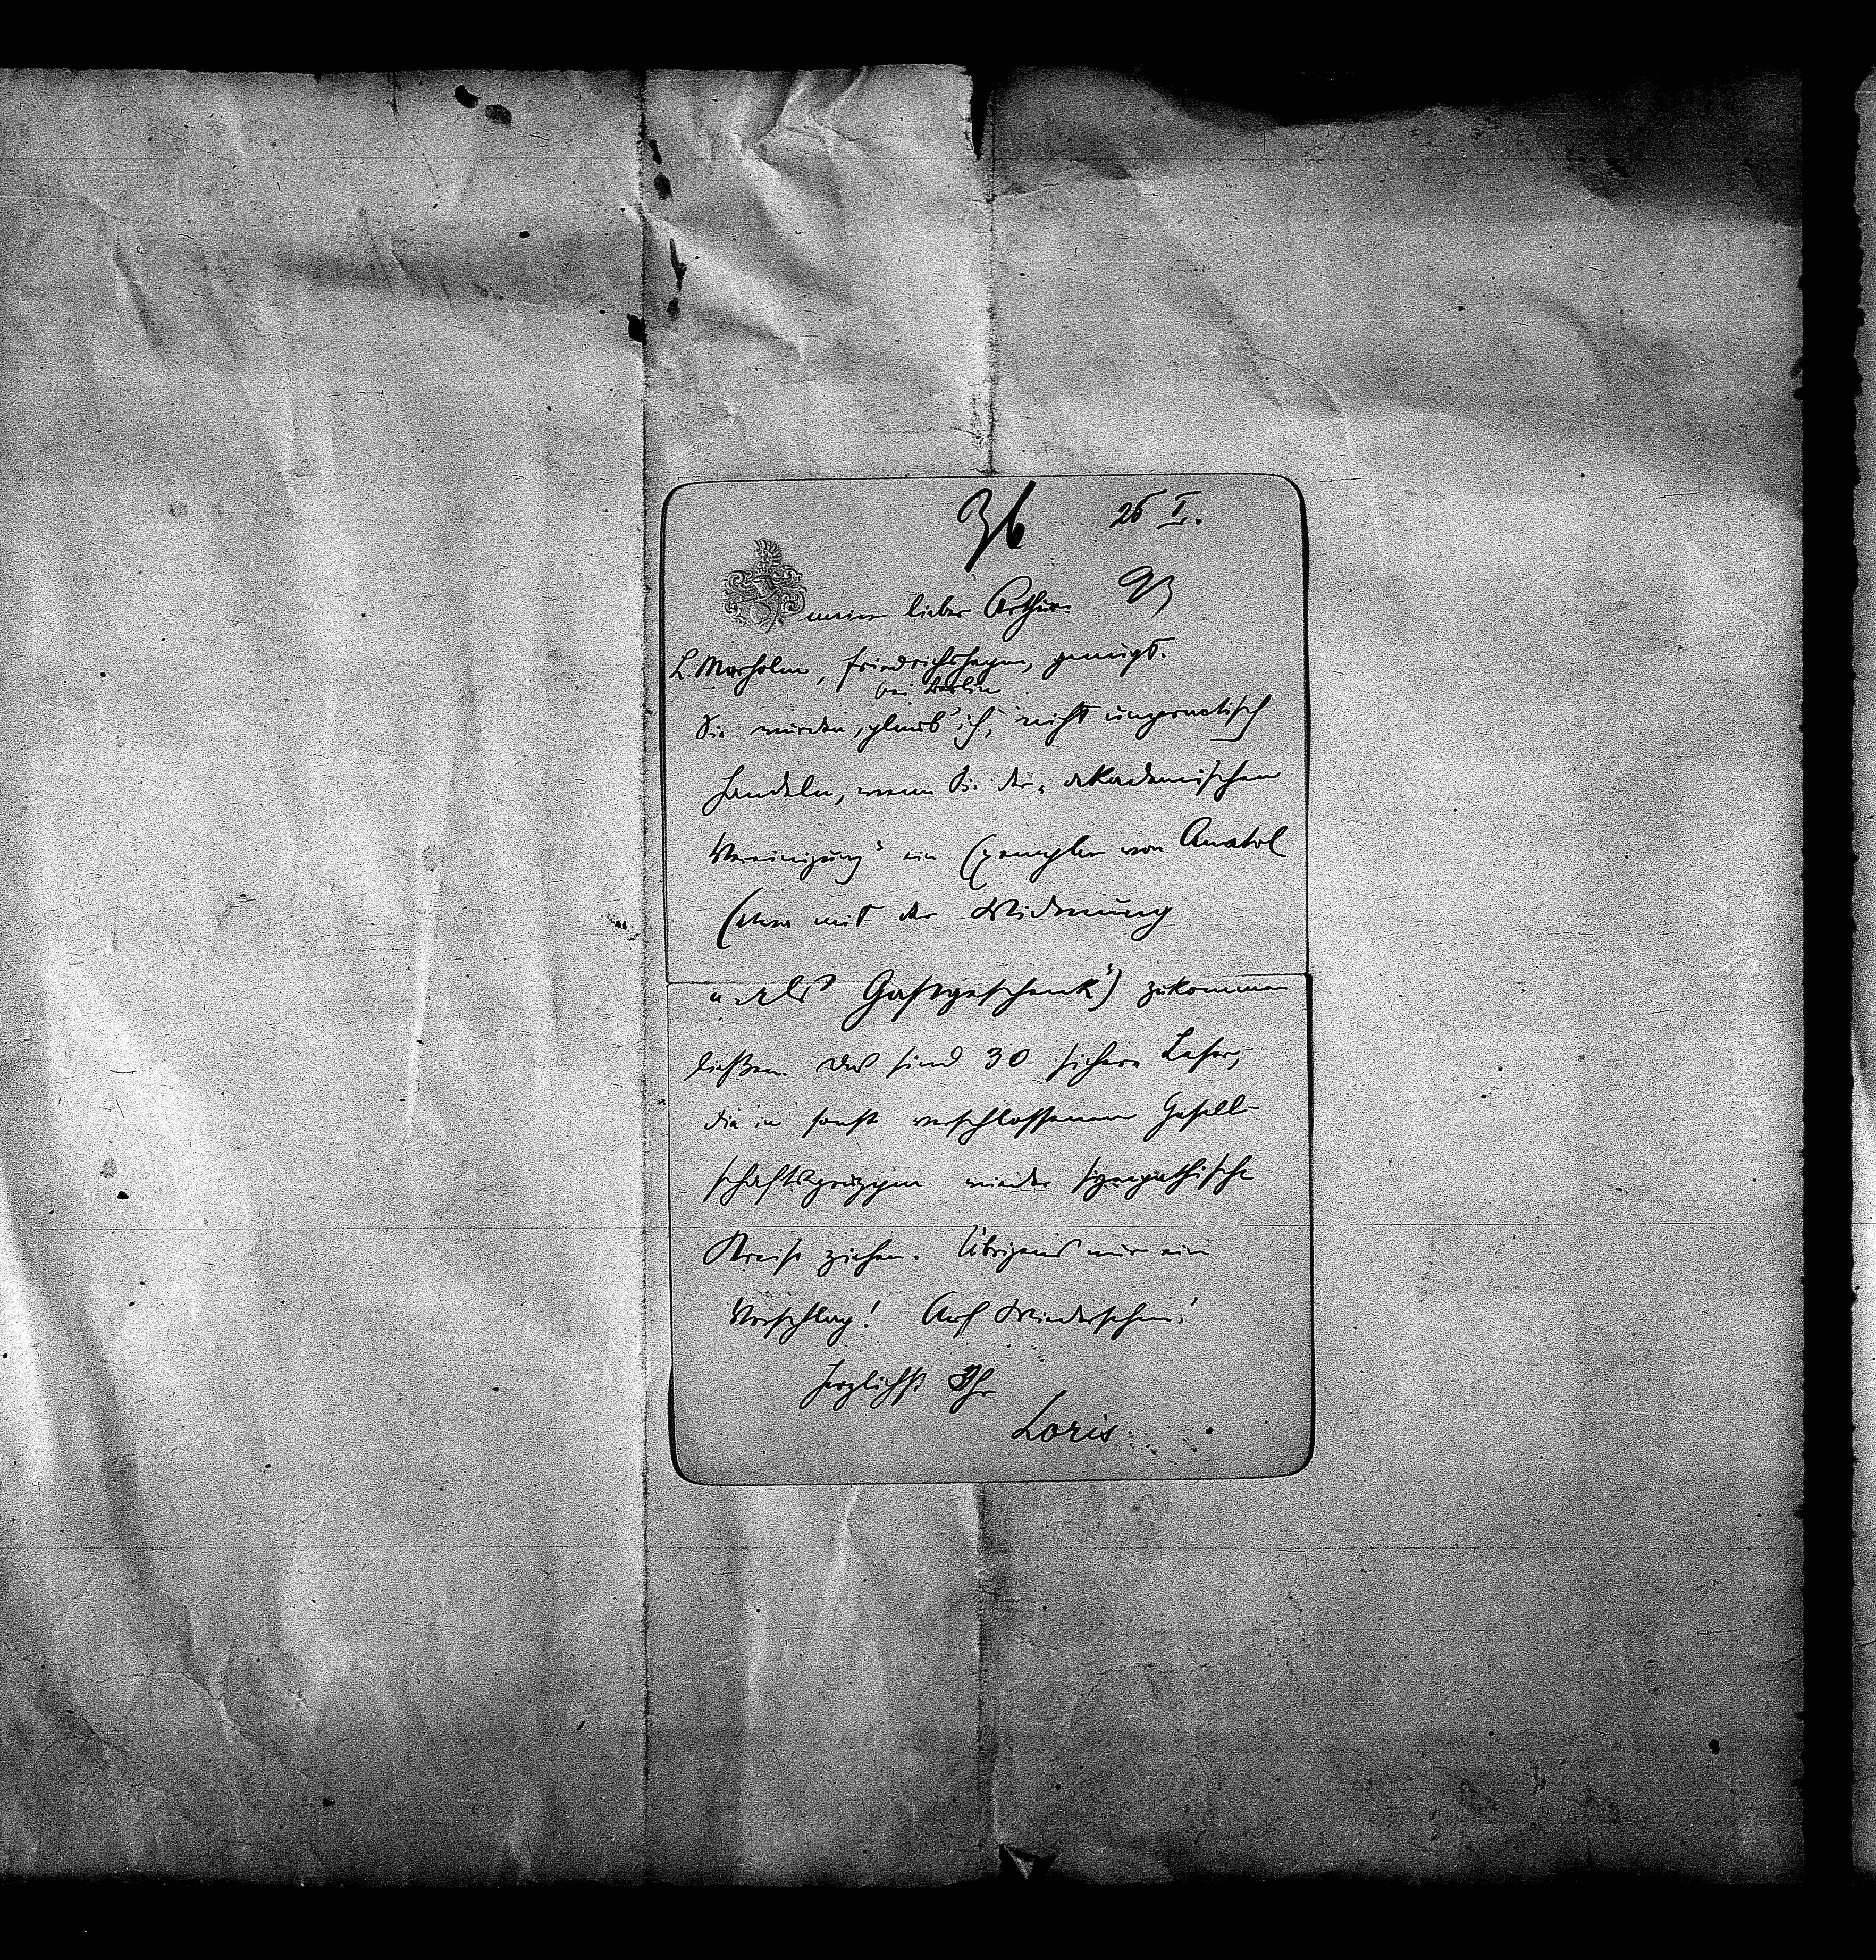 36
25 I.
93
mein lieber Arthur.
L. Marholm, Friedrichshagen, genügt.
bei Berlin
Sie würden, glaub' ich, nicht unpractisch
handeln, wenn Sie der „akademischen
Vereinigung" ein Exemplar von Anatol
(etwa mit der Widmung
„als Gastgeschenk") zukommen
ließen. Das sind 30 sichere Leser,
die in sonst verschlossenen Gesell-
schaftsgruppen wieder sympathische
Kreise ziehen. Übrigens nur ein
Vorschlag! Auf Wiedersehen!
herzlichst Ihr
Loris.